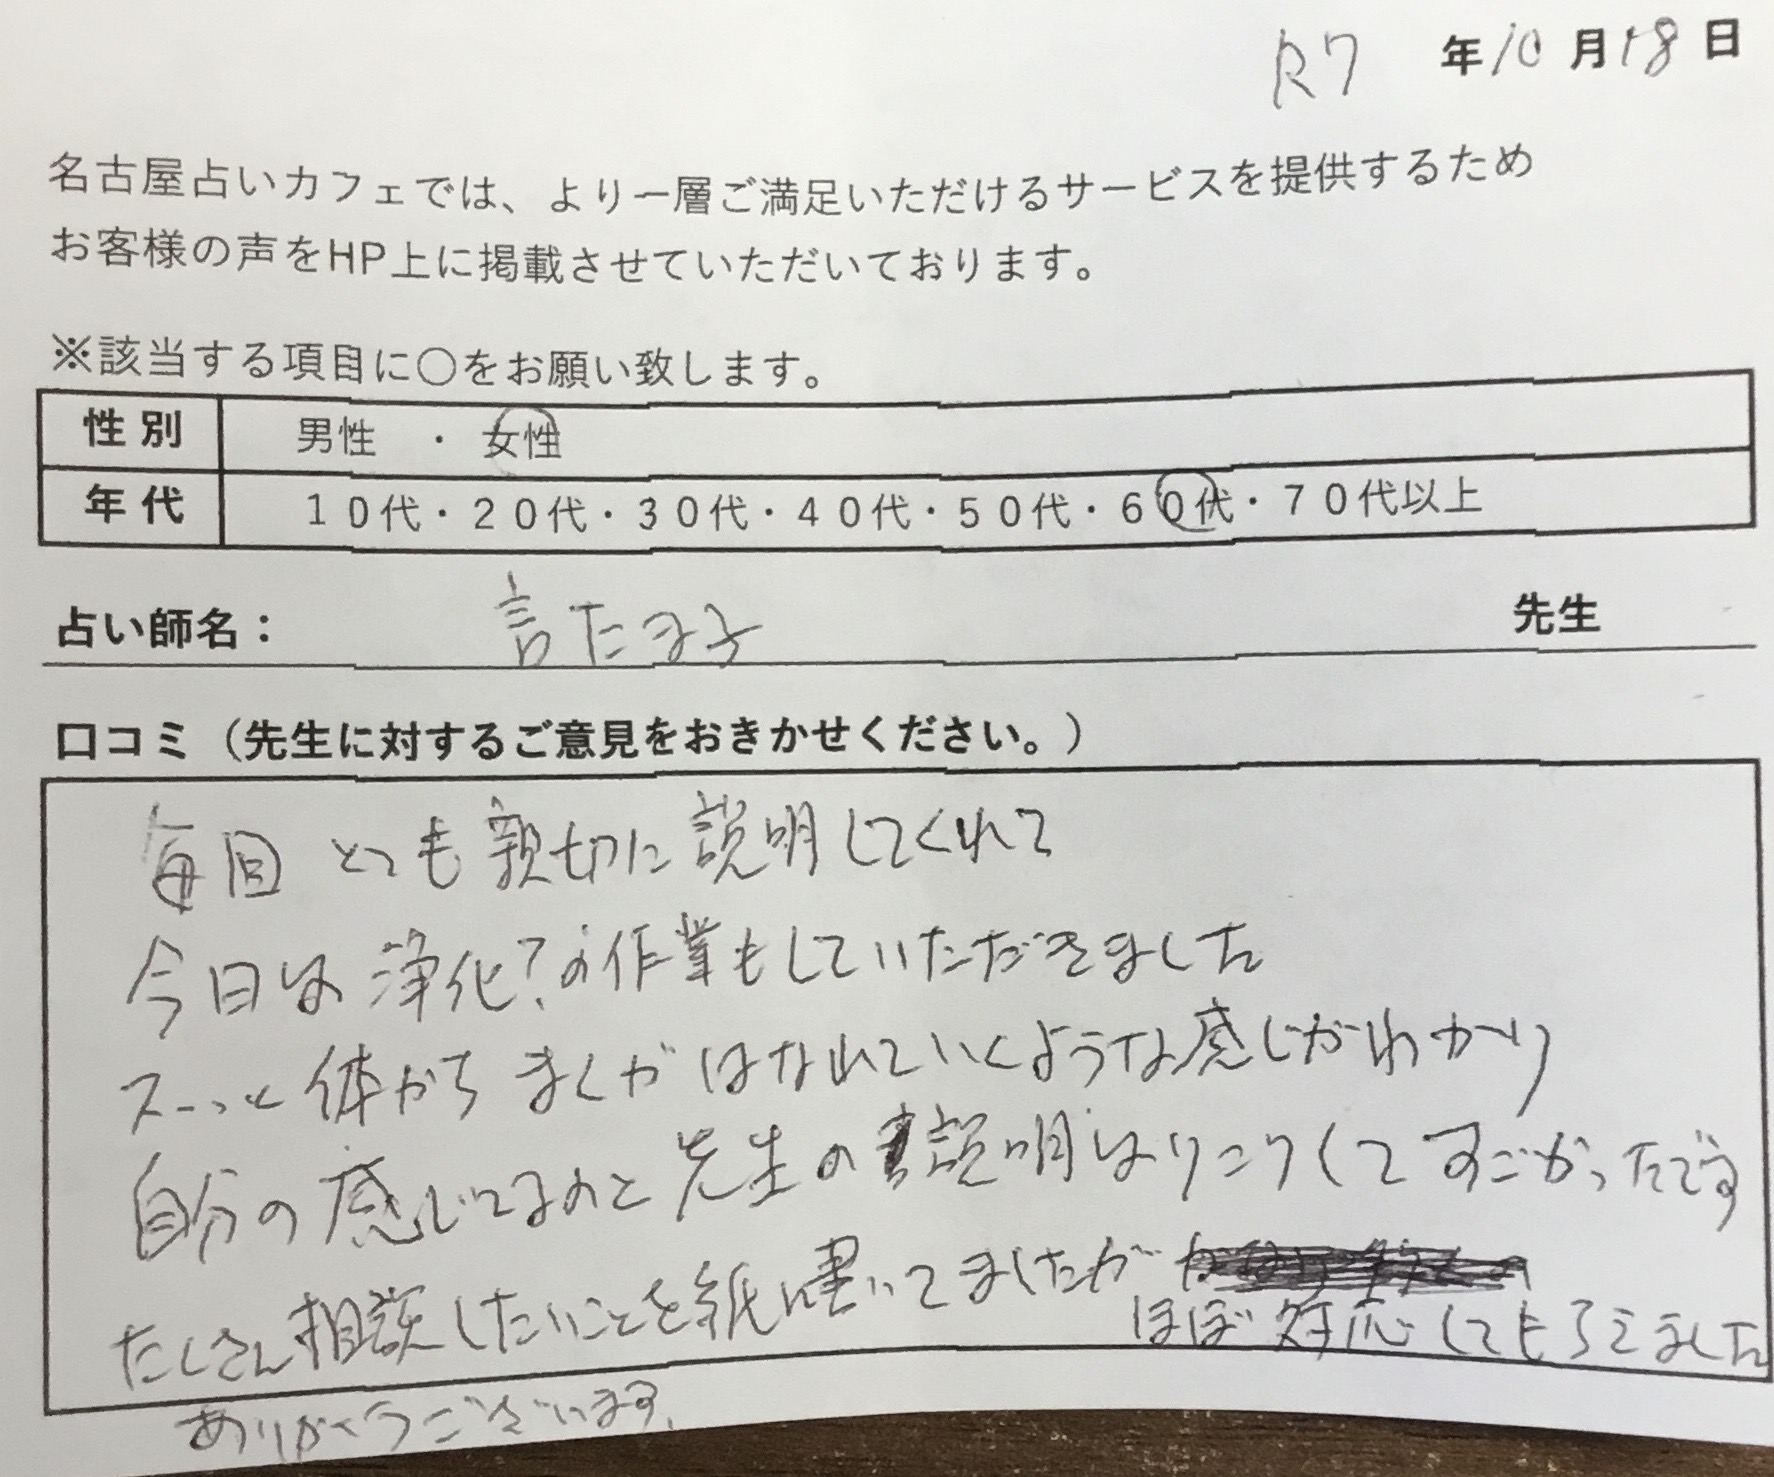 R7 年10月18日
名古屋占いカフェでは、より一層ご満足いただけるサービスを提供するため
お客様の声をHP上に掲載させていただいております。
※該当する項目に〇をお願い致します。
性別 男性 ・ 女性
年代 10代・20代・30代・40代・50代・60代・70代以上
占い師名： 言たま子 先生
口コミ（先生に対するご意見をおきかせください。）
毎回 とても親切に説明してくれて
今日は浄化?の作業もしていただきました
スーっと体からまくがはなれていくような感じがわかり
自分の感じてるのと先生の説明はりこりくてすごかったです
たくさん相談したいことを紙に書いてましたが
ほぼ対応してもらえました
ありがとうございます。